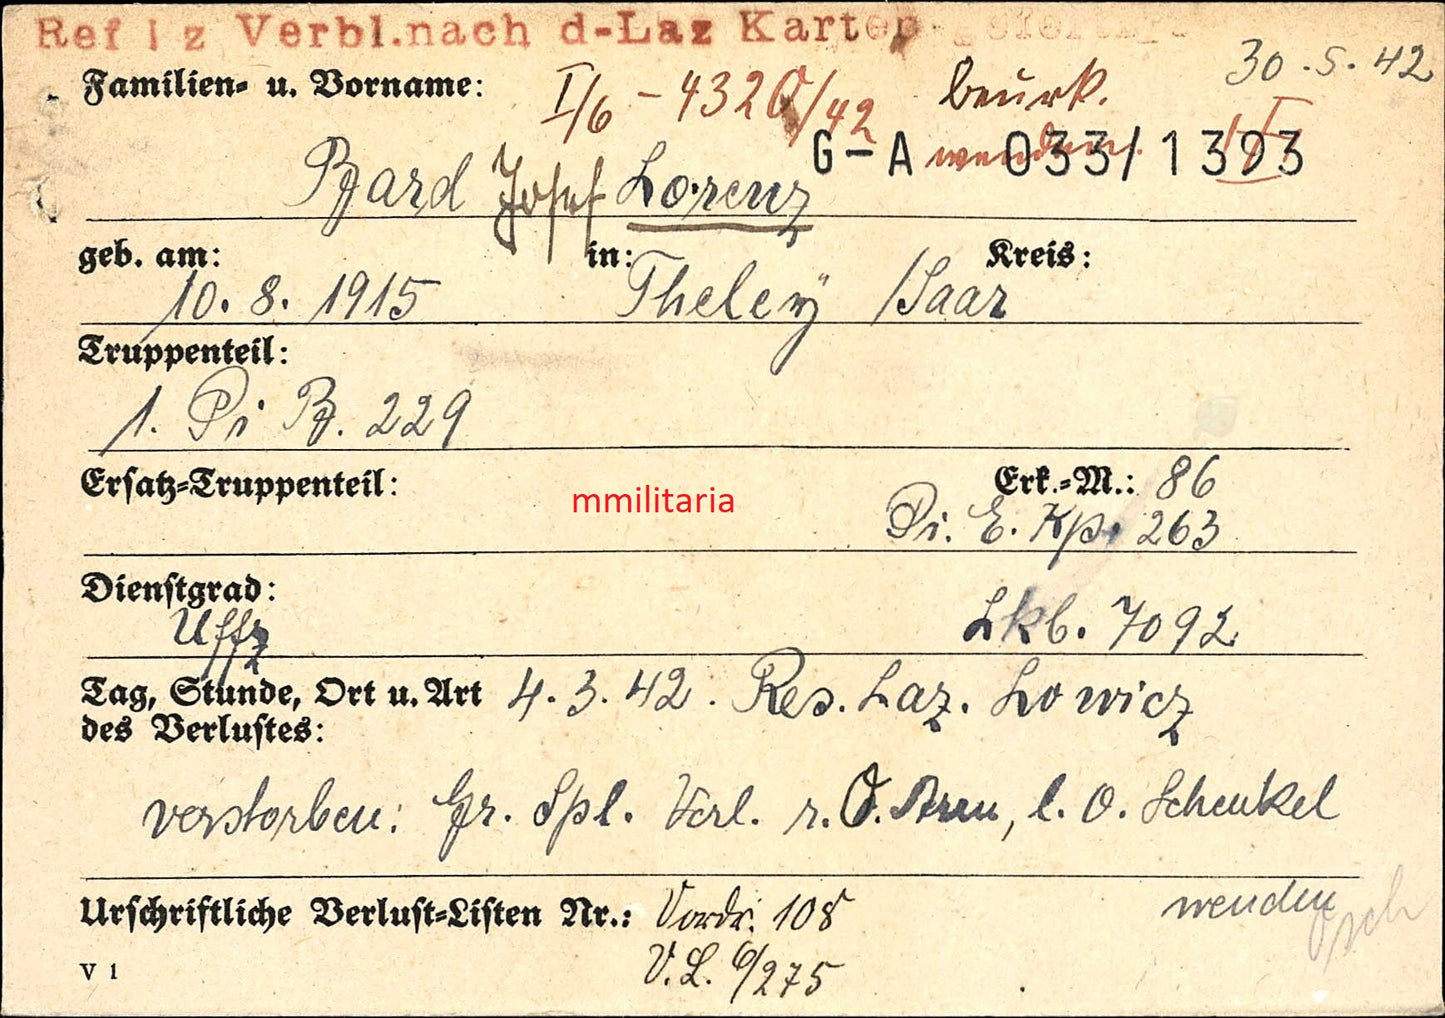 Ref I z Verbl.nach d-Laz Karten
30.5.42
Familien- u. Vorname: I/6 - 4320/42 beurk.
G-A 033/1393
Bard Josef Lorenz
geb. am: in: Kreis:
10. 8. 1915 Theley /Saar
Truppenteil:
1. Pi B. 229
Ersatz-Truppenteil: Erk.-M.: 86
mmilitaria
Pi. E. Kp. 263
Dienstgrad:
Uffz Lkb. 7092
Tag, Stunde, Ort u. Art 4. 3. 42. Res. Laz. Lowicz
des Verlustes:
verstorben: Gr. Spl. Verl. r. O. Arm, l. O. Schenkel
Urschriftliche Verlust-Listen Nr.: Vordr. 108 wenden
V. L. 6/275
V 1